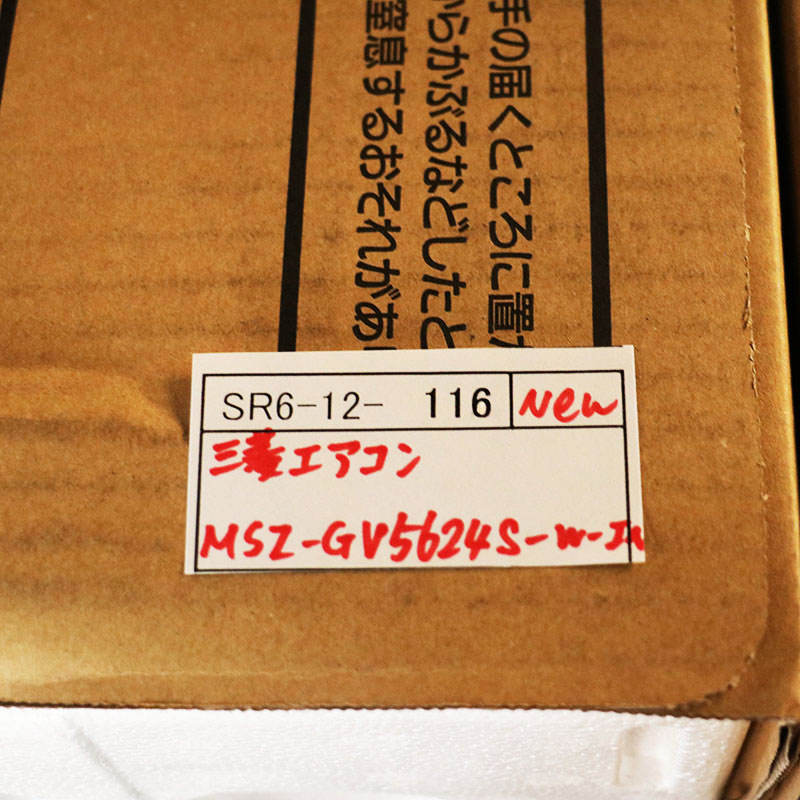 手の届くところに置か
からかぶるなどしたと
窒息するおそれがあ
SR6-12- 116 New
三菱エアコン
MSZ-GV5624S-W-IN